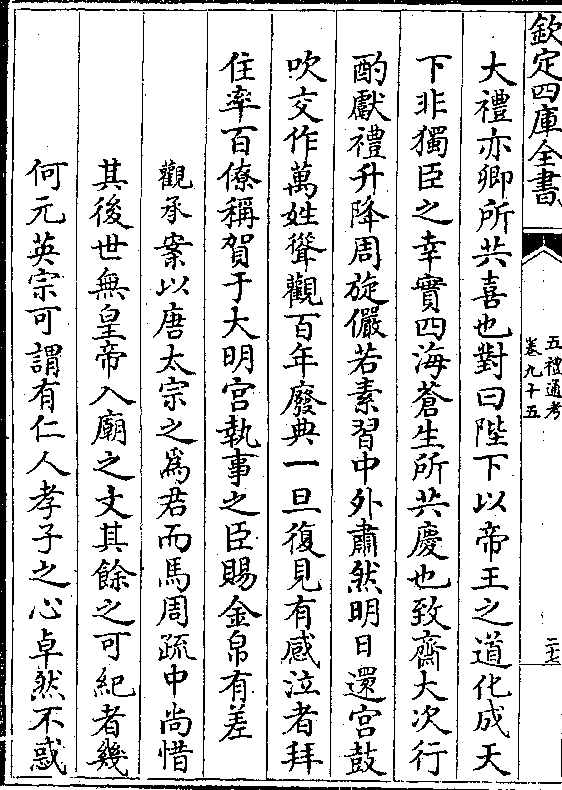 欽定四庫全書
五禮通考
卷九十五
二十七
大禮亦卿所共喜也對曰陛下以帝王之道化成天
下非獨臣之幸實四海蒼生所共慶也致齋大次行
酌獻禮升降周旋儼若素習中外肅然明日還宮鼓
吹交作萬姓聳觀百年廢典一旦復見有感泣者拜
住率百僚稱賀于大明宮執事之臣賜金帛有差
觀承案以唐太宗之爲君而馬周疏中尚惜
其後世無皇帝入廟之文其餘之可紀者幾
何元英宗可謂有仁人孝子之心卓然不惑